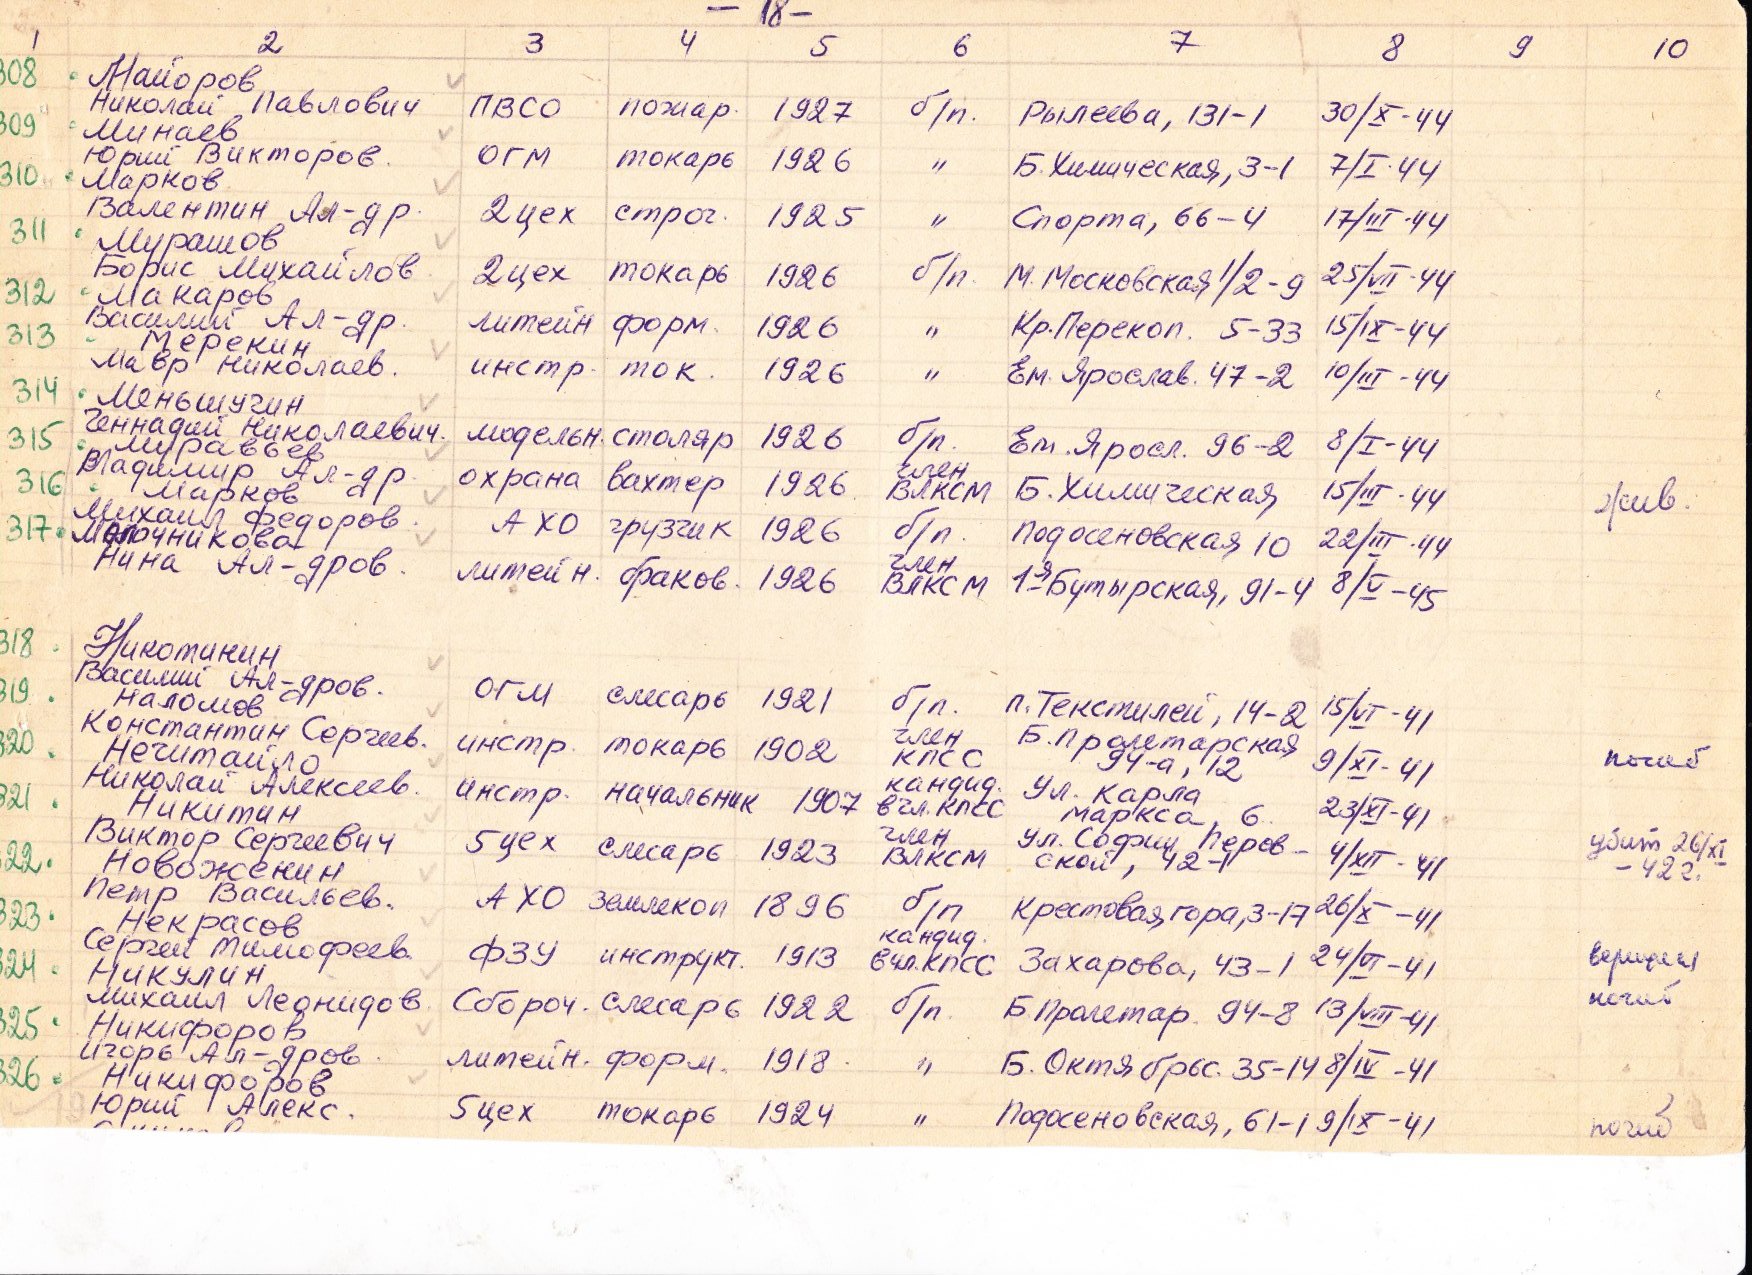 — 18 —
1 2 3 4 5 6 7 8 9 10
308 Майоров
Николай Павлович ПВСО пожар. 1927 б/п. Рылеева, 131-1 30/X-44
309 Минаев
Юрий Викторов. ОГМ токарь 1926 " Б. Химическая, 3-1 7/I-44
310 Марков
Валентин Ал-др. 2 цех строг. 1925 " Спорта, 66-4 17/III-44
311 Мурашов
Борис Михайлов 2 цех токарь 1926 б/п. М. Московская 1/2-9 25/VII-44
312 Макаров
Василий Ал-др. литейн форм. 1926 " Кр. Перекоп. 5-33 15/IX-44
313 Мерекин
Мавр Николаев. инстр. ток. 1926 " Ем. Ярослав. 47-2 10/III-44
314 Меньшугин
Геннадий Николаевич. модельн. столяр 1926 б/п. Ем. Яросл. 96-2 8/I-44
315 Муравьев член
Владимир Ал-др. охрана вахтер 1926 ВЛКСМ Б. Химическая 15/III-44
316 Марков жив.
Михаил Федоров. АХО грузчик 1926 б/п. Подосеновская 10 22/III-44
317 Молочникова член
Нина Ал-дров. литейн. браков. 1926 ВЛКСМ 1я Бутырская, 91-4 8/V-45
318 Никотинин
Василий Ал-дров. ОГМ слесарь 1921 б/п. п. Текстилей, 14-2 15/VI-41
319 Наломов член Б. Пролетарская
Константин Сергеев. инстр. токарь 1902 КПСС 94-а, 12 9/XI-41 погиб
320 Нечитайло кандид. Ул. Карла
Николай Алексеев. инстр. начальник 1907 в чл. КПСС Маркса, 6. 23/XI-41
321 Никитин член ул. Софии Перов-
Виктор Сергеевич 5 цех слесарь 1923 ВЛКСМ ской, 42-1 4/XII-41 убит 26/XI
-42 г.
322 Новоженин
Петр Васильев. АХО землекоп 1896 б/п Крестовая гора, 3-17 26/X-41
323 Некрасов кандид.
Сергей Тимофеев. ФЗУ инструкт. 1913 в чл. КПСС Захарова, 43-1 24/VI-41
324 Никулин погиб
Михаил Леонидов. Сбороч. слесарь 1922 б/п. Б. Пролетар. 94-8 13/VIII-41
325 Никифоров
Игорь Ал-дров. литейн. форм. 1918 " Б. Октябрьс. 35-14 8/IV-41
326 Никифоров
Юрий Алекс. 5 цех токарь 1924 " Подосеновская, 61-1 9/IX-41 погиб